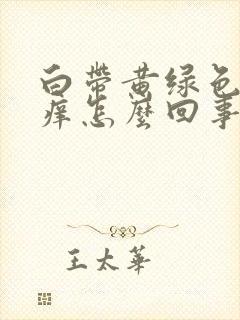 白帶黄绿色
痒怎麼回事
王太華